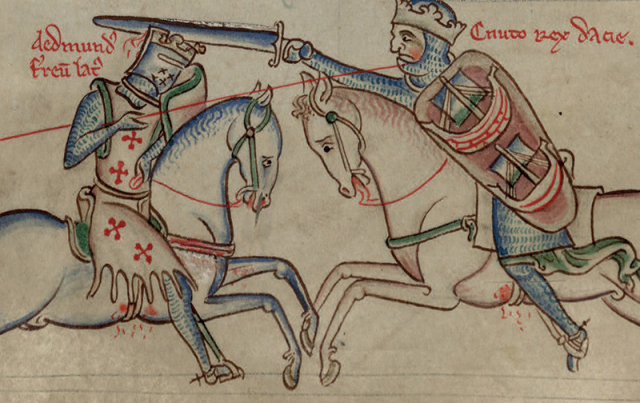 Aedmund᷒
ferreũ lat᷒
Cnuto rex dacie.